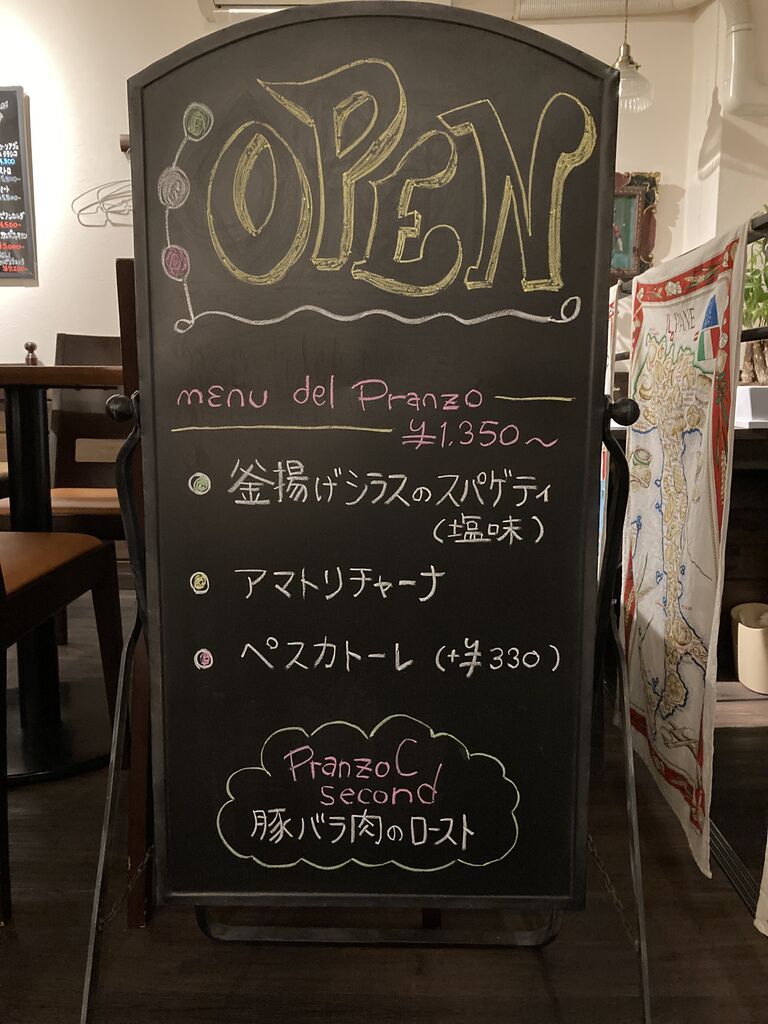 OPEN
menu del Pranzo
¥1,350〜
釜揚げシラスのスパゲティ
(塩味)
アマトリチャーナ
ペスカトーレ (+¥330)
Pranzo C
second
豚バラ肉のロースト
PANE